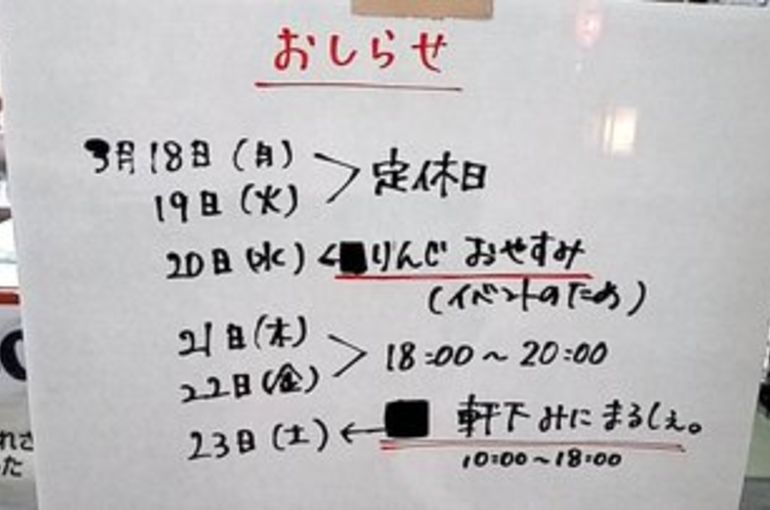 おしらせ
3月18日(月)
19日(火)
定休日
20日(水) ← りんじ おやすみ
(イベントのため)
21日(木)
22日(金)
18:00~20:00
23日(土) ← 軒下 みに まるしぇ。
10:00~18:00
れさ
った